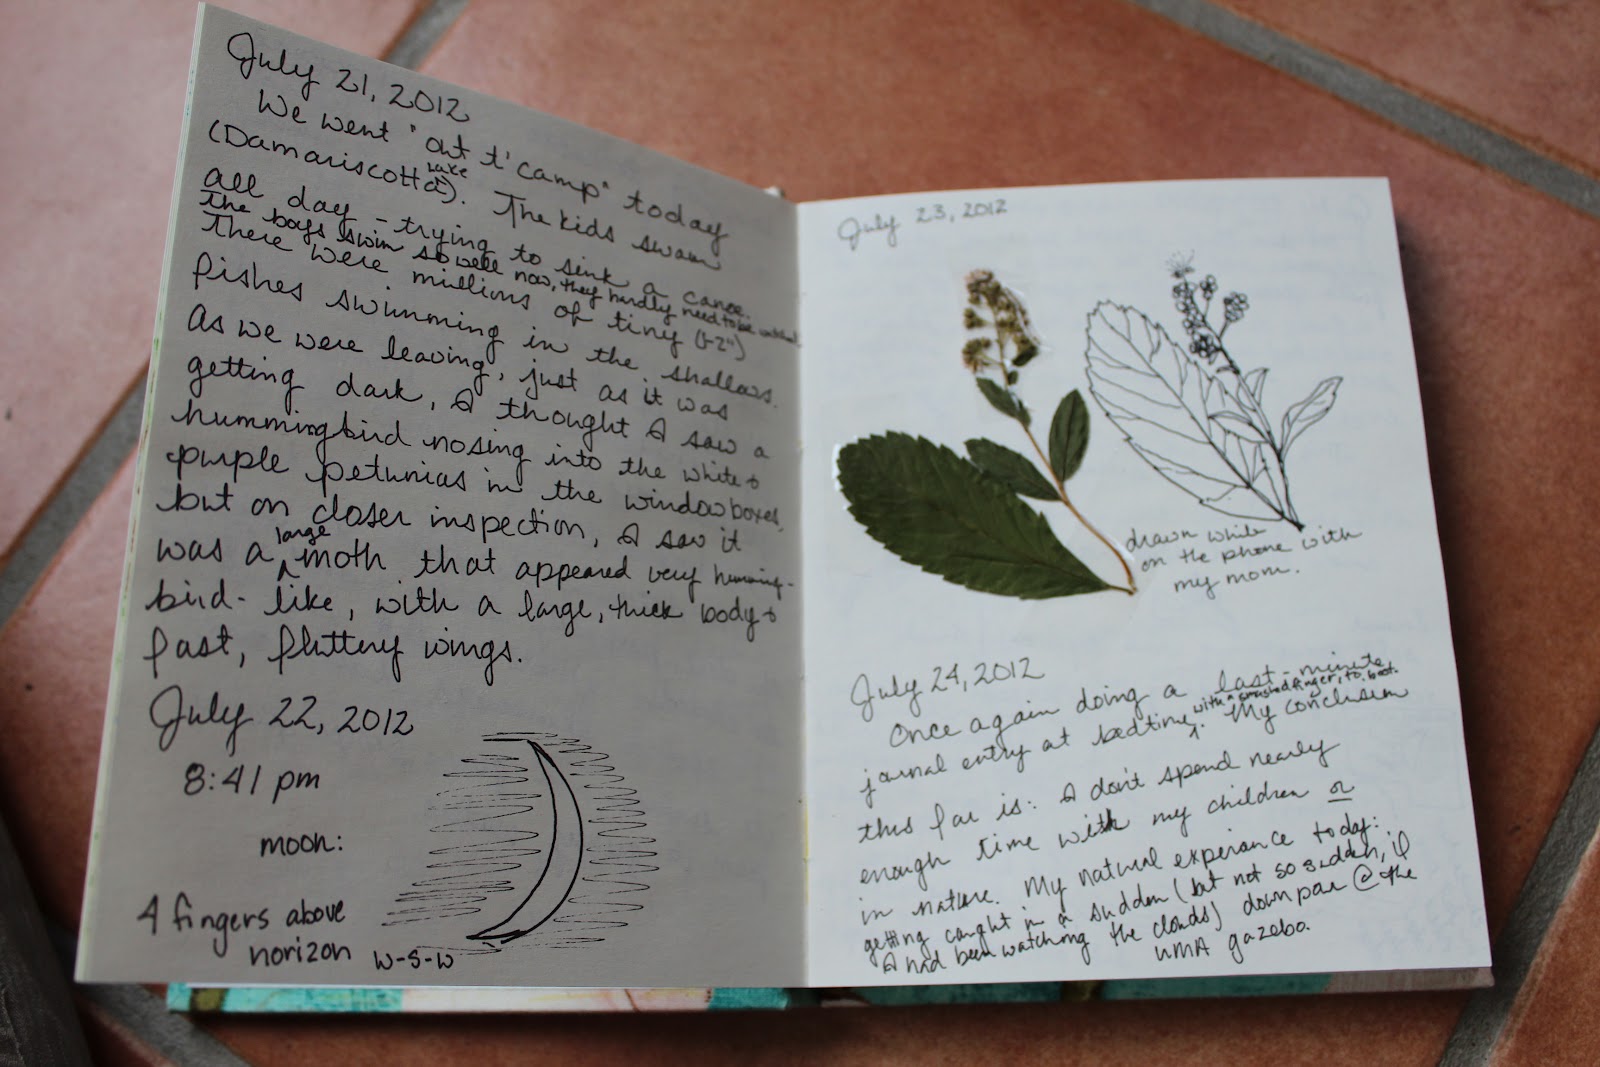 July 21, 2012
We went "out t' camp" today
(Damariscotta Lake). The kids swam
all day - trying to sink a canoe.
The boys swim so well now, they hardly need to be watched.
There were millions of tiny (1-2")
fishes swimming in the shallows.
As we were leaving, just as it was
getting dark, I thought I saw a
hummingbird nosing into the white &
purple petunias in the windowboxes,
but on closer inspection, I saw it
was a large moth that appeared very humming-
bird-like, with a large, thick body &
fast, fluttery wings.
July 22, 2012
8:41 pm
moon:
4 fingers above
horizon W-S-W
July 23, 2012
drawn while
on the phone with
my mom.
July 24, 2012
Once again doing a last-minute
journal entry at bedtime, with a smashed finger, to boot. My conclusion
this far is: I don't spend nearly
enough time with my children or
in nature. My natural experience today:
getting caught in a sudden (but not so sudden, if
I had been watching the clouds) downpour @ the
UMA gazebo.